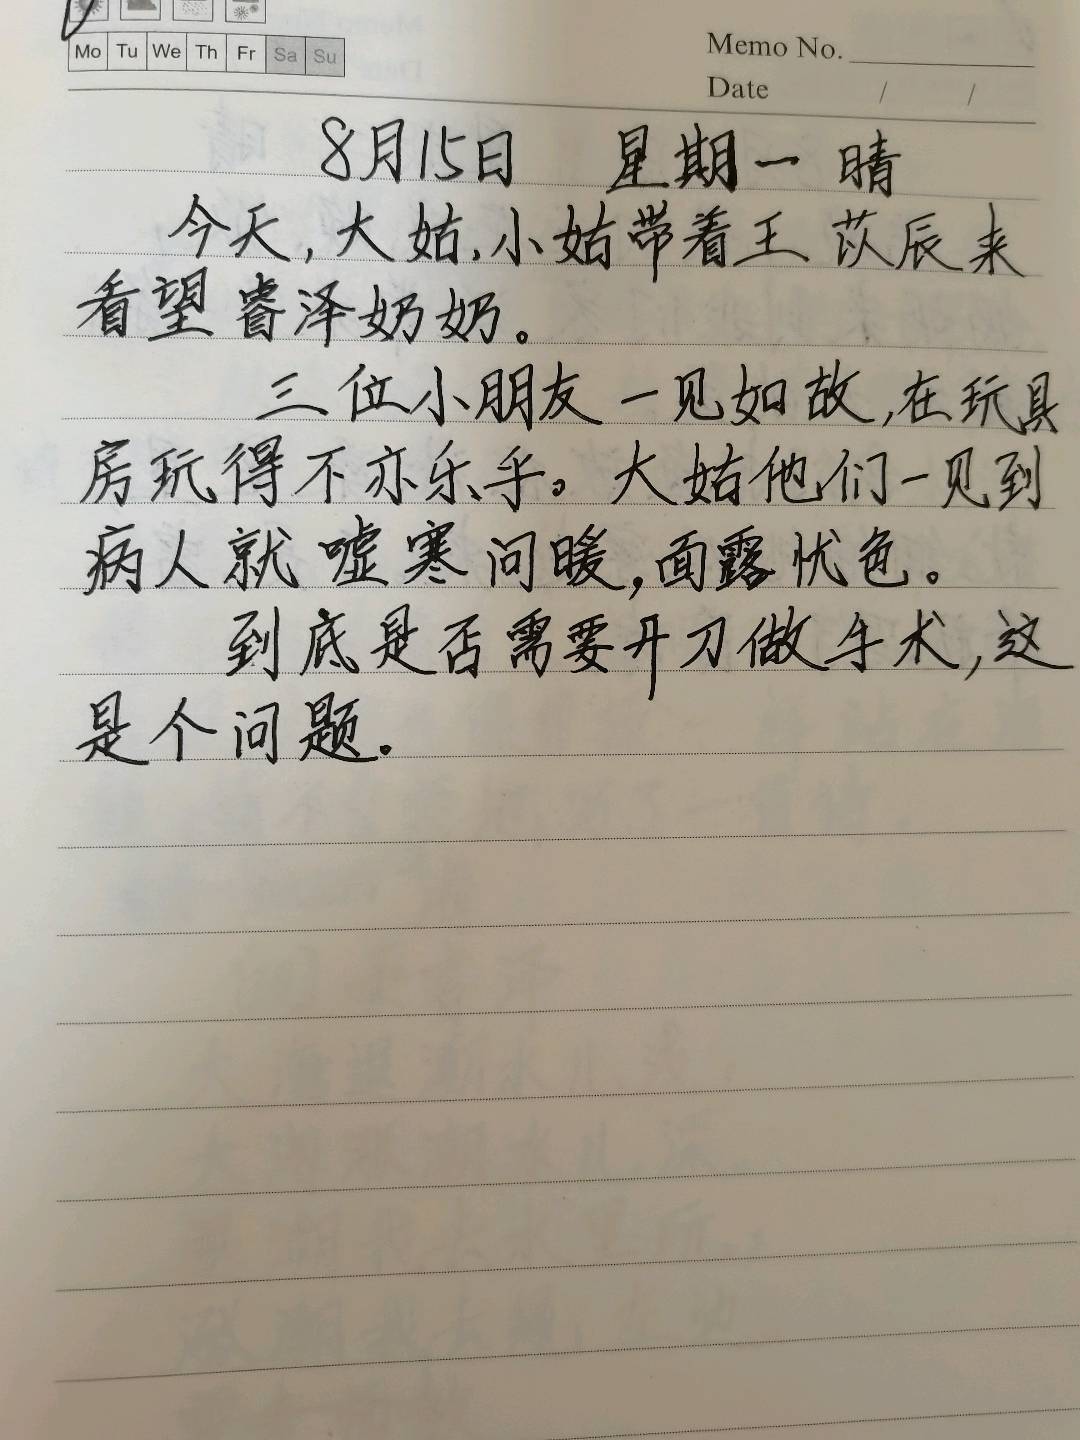 Mo Tu We Th Fr Sa Su
Memo No.
Date / /
8月15日 星期一 晴
今天,大姑,小姑带着王苡辰来
看望睿泽奶奶。
三位小朋友一见如故,在玩具
房玩得不亦乐乎。大姑他们一见到
病人就嘘寒问暖,面露忧色。
到底是否需要开刀做手术,这
是个问题。